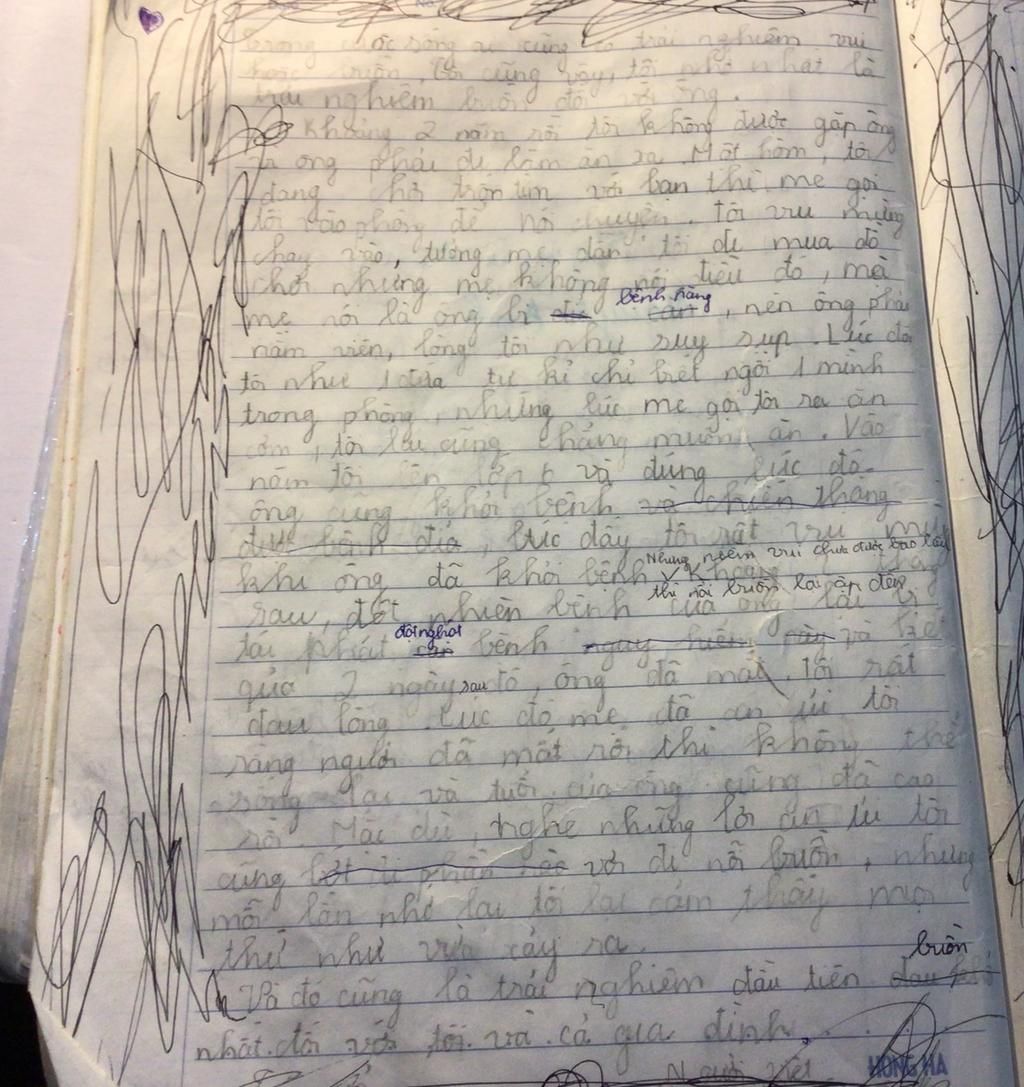 trong cuộc sống ai cũng có trải nghiệm vui
hoặc buồn, tôi cũng vậy, tôi nhớ nhất là
trải nghiệm buồn đối với ông.
Khoảng 2 năm rồi tôi không được gặp ông
vì ông phải đi làm ăn xa. Một hôm, tôi
đang chơi trốn tìm với bạn thì mẹ gọi
tôi vào phòng để nói chuyện. tôi vui mừng
chạy vào, tưởng mẹ dẫn tôi đi mua đồ
chơi nhưng mẹ không nói điều đó, mà
mẹ nói là ông bị bệnh nặng, nên ông phải
nằm viện, lòng tôi như suy sụp. Lúc đó
tôi như 1 đứa tự kỉ chỉ biết ngồi 1 mình
trong phòng, những lúc mẹ gọi tôi ra ăn
cơm, tôi cũng chẳng muốn ăn. Vào
năm tôi lên lớp 6 và đúng lúc đó
ông cũng khỏi bệnh và chiến thắng
được bệnh đó, lúc đấy tôi rất vui mừng
Nhưng niềm vui chưa được bao lâu
khi ông đã khỏi bệnh khoảng tháng
thì nỗi buồn lại ập đến
sau, đột nhiên bệnh của ông lại bị
đội nghột
tái phát bệnh nguy hiểm này và kết
quả 2 ngày sau đó, ông đã mất. tôi rất
đau lòng. Lúc đó mẹ đã an ủi tôi
rằng người đã mất rồi thì không thể
sống lại và tuổi của ông cũng đã cao
rồi. Mặc dù, nghe những lời an ủi tôi
cũng bớt đi phần nào vơi đi nỗi buồn, nhưng
mỗi lần nhớ lại tôi lại cảm thấy mọi
thứ như vừa cảy ra.
buồn
Và đó cũng là trải nghiệm đầu tiên đau khổ
nhất đối với tôi và cả gia đình.
Người viết
HONG HA